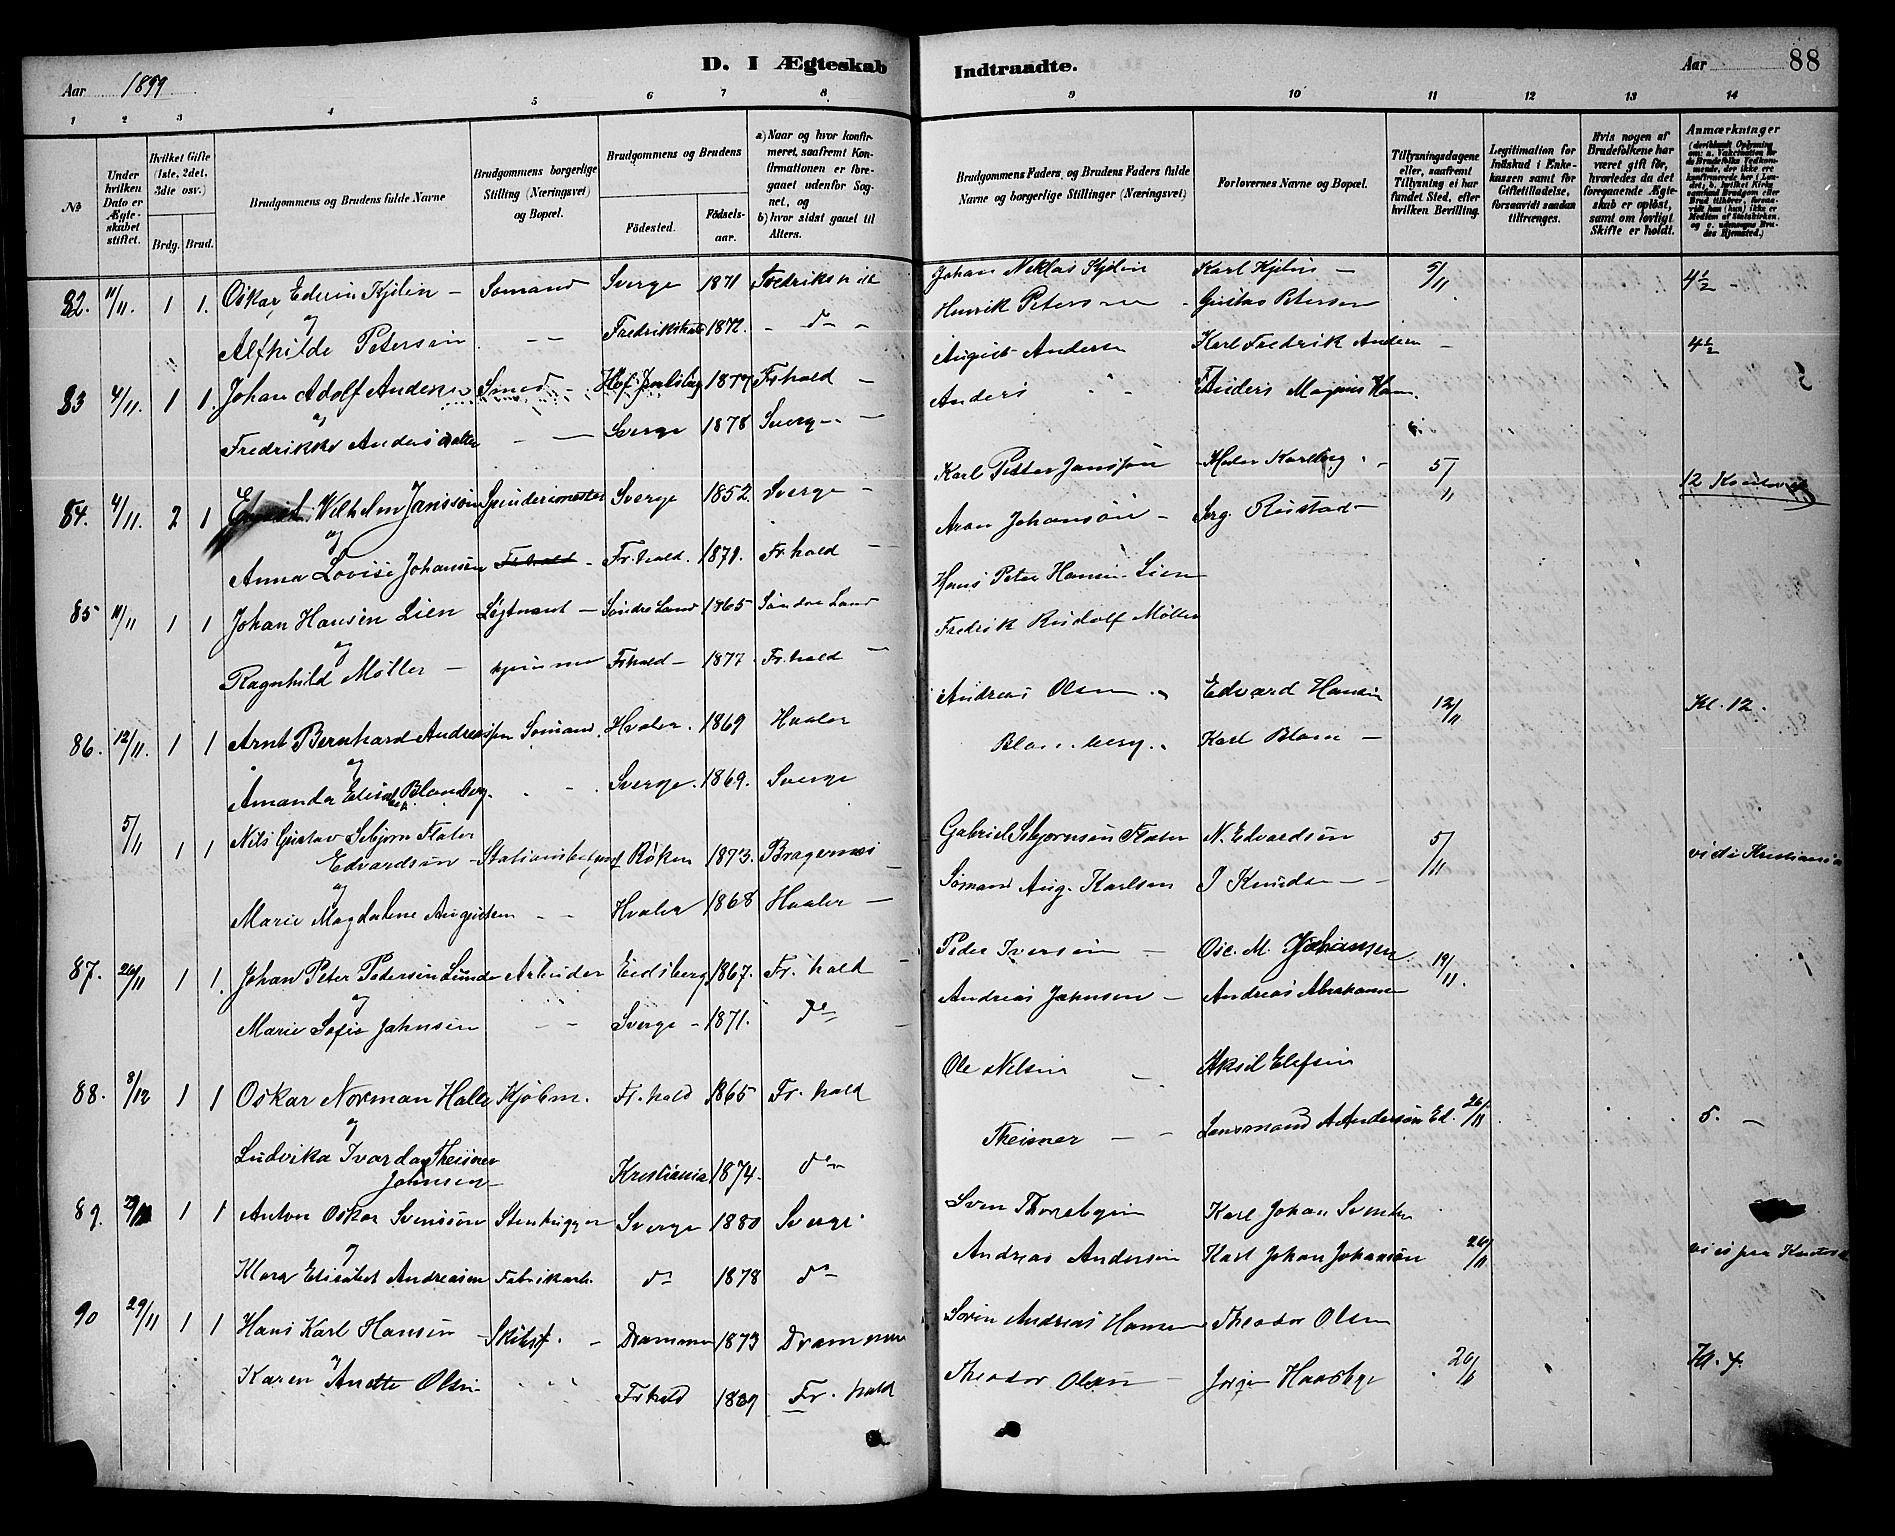 Aar 1899
D. I Ægteskab Indtraadte.
Aar 88
1 2 3 4 5 6 7 8 9 10 11 12 13 14
No
Under hvilken Dato er Ægteskabet stiftet.
Hvilket Gifte (1ste, 2det, 3die osv.)
Brdg. Brud.
Brudgommens og Brudens fulde Navne
Brudgommens borgerlige Stilling (Næringsvei) og Bopæl.
Brudgommens og Brudens
Fødested.
Fødselsaar.
a) Naar og hvor konfirmeret, saafremt Konfirmationen er foregaaet udenfor Sognet, og
b) hvor sidst gaaet til Alters.
Brudgommens Faders, og Brudens Faders fulde Navne og borgerlige Stillinger (Næringsvei)
Forlovernes Navne og Bopæl.
Tillysningsdagene eller, saafremt Tillysning ei har fundet Sted, efter hvilken Bevilling.
Legitimation for Indskud i Enkekassen samt for Giftetilladelse, forsaavidt saadan tiltrænges.
Hvis nogen af Brudefolkene har været gift før, hvorledes da det foregaaende Ægteskab er opløst, samt om lovligt Skifte er holdt.
Anmærkninger
82. 11/11. 1 1. Oskar Ederin Kjølin – Sømand Sverge 1871 Fredriksh
Johan Niklas Kjølin Karl Kjølin – 5/11 4½ –
og
Alfhilde Petersen – – Fredrikshald 1872. – do –
Henrik Petersen Gustav Petersen
83 4/11. 1 1. Johan Adolf Andersen Smed – 1877 Frhald –
August Andersen Karl Fredrik Andersen – 4½
og
Fredrikke Andersdatter – – Sverge 1878 Sverge –
Anders Anders Magnus
84. 4/11. 2 1 Wilhelm Janssøn Spinderimester Sverge 1852. Sverge –
Karl Petter Janssøn Maler Karlberg. – 5/11 12
og
Anna Lovise Johansen Frhald – Fr. hald. 1871. Fr. hald –
Aron Johansøn – Serg. Rustad –
85 11/11 1 1 Johan Hansen Lien Løjtnant – Søndre Land 1865 Søndre Land
Hans Peter Hansen Lien
og
Ragnhild Møller – Frhald – 1877 Fr. hald –
Fredrik Rudolf Møller
86. 12/11. 1 1 Arnt Bernhard Andreassen Sømand. Hvaler. 1869 Hvaler
Andreas Olsen Edvard Hansen 12/11 Kl. 12.
og
Amanda Elisabet Blomberg. Sverge. 1869. Sverge
Blomberg. Karl Blom –
5/11 1 1 Nils Gustav Sebjørn Flater
Edvardsen – Stationsbetjent Røken 1873. Bragernes
Gabriel Sebjørnsen Flater N. Edvardsen 5/11 vidi Kristiania
og
Marie Magdalene Augustsen – – Hvaler 1868 Hvaler –
Sømand Aug. Karlsen P Knudsen –
87. 26/11 1 1. Johan Peter Pedersen Lunde Arbeider Eidsberg 1867. Fr. hald
Peder Iversen – Osc. M. Johansen 19/11.
og
Marie Sofie Jahnsen – – Sverge – 1871. do
Andreas Jahnsen – Andreas Abrahamsen
88. 8/12 1 1 Oskar Norman Halle Kjøbm. Fr. hald 1865 Fr. hald
Ole Nilsen Aksel Elefsen
og
Ludvika Ivarda Theisner
Johnsen – Kristiania 1874. do
Theisner – – Lensmand A Andersen Ed. 26/11 5. –
89. 1 1 Anton Oskar Svenssøn Stenhugger Sverge 1880 Sverge
Sven Karl Johan Svensen
og
Klara Elisabet Andreasen Fabrikarb. do 1878 do –
Andreas Andersen Karl Johan Johansøn 26/11
90 29/11 1 1 Hans Karl Hansen – Drammen 1873 Drammen
Søren Andreas Hansen Theodor Olsen
Karen Anette Olsen Frhald 1869 Fr. hald
Theodor Olsen – Jørgen Haaby 26/11 Kl. 4.